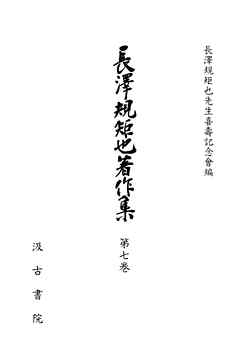 長澤規矩也先生喜壽記念會編
長澤規矩也著作集
第七巻
汲古書院